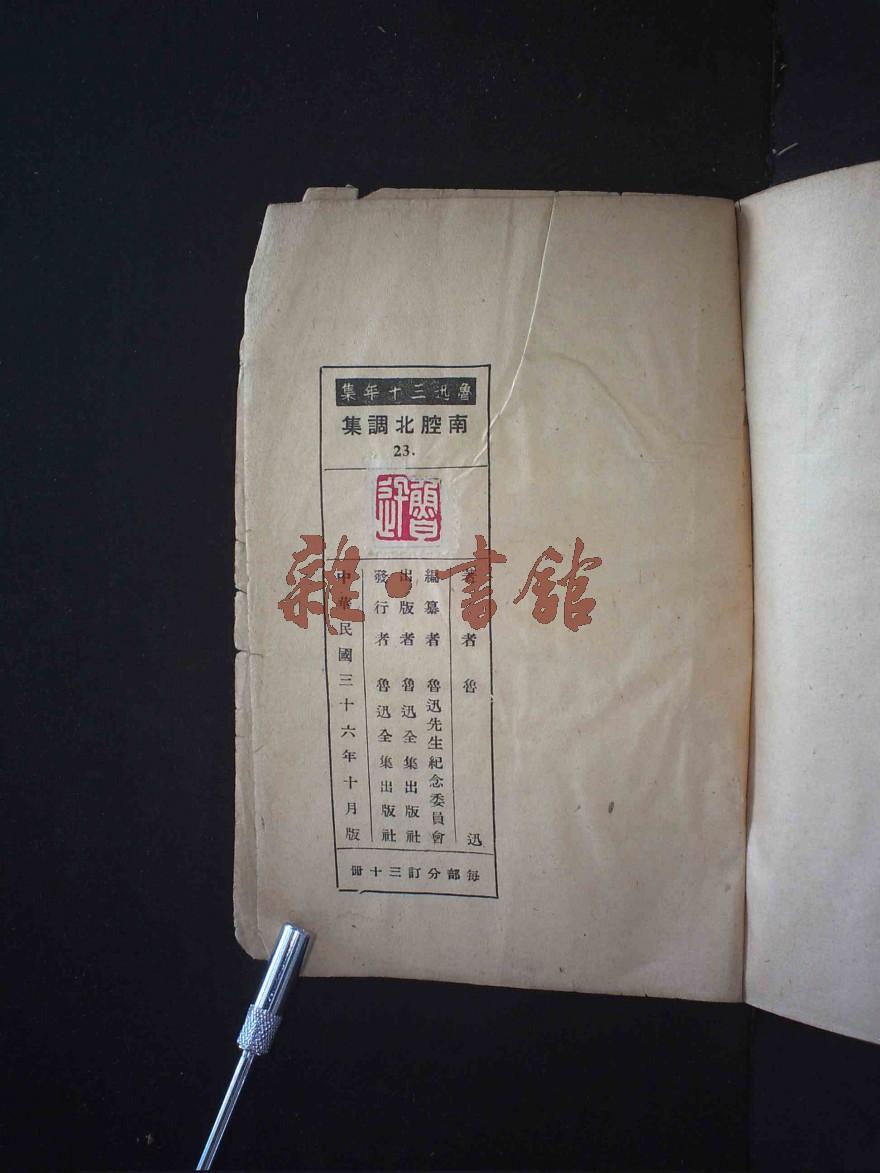 魯迅三十年集
南腔北調集
23.
魯迅
著者 魯迅
編纂者 魯迅先生紀念委員會
出版者 魯迅全集出版社
發行者 魯迅全集出版社
中華民國三十六年十月版
每部分訂三十冊
雜·書館